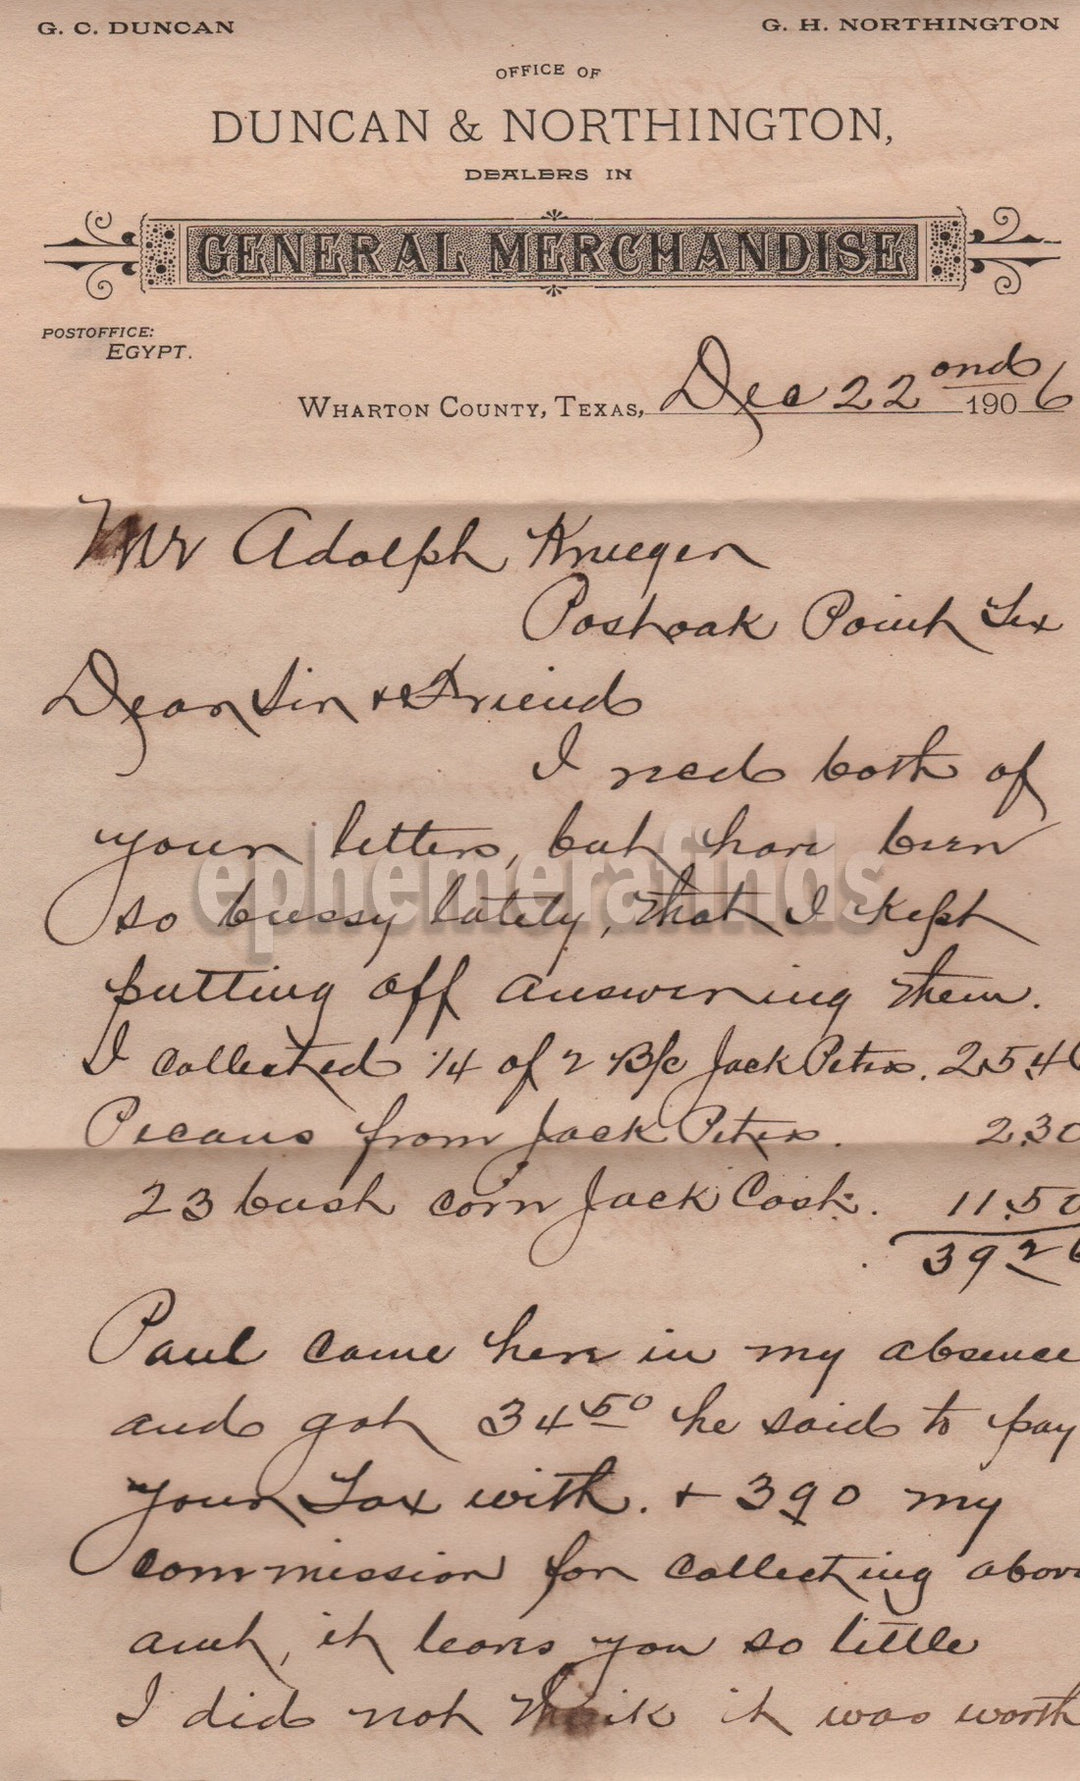 G. C. DUNCAN G. H. NORTHINGTON
OFFICE OF
DUNCAN & NORTHINGTON,
DEALERS IN
GENERAL MERCHANDISE
POSTOFFICE:
EGYPT.
WHARTON COUNTY, TEXAS, Dec 22ond 1906
Mr Adolph Krueger
Postoak Point Tex
Dear Sir & Friend
I recd both of
your letters, but have been
so bussy lately, that I kept
putting off answering them.
I collected 1/4 of 2 B/c Jack Peters. 25.46
Pecans from Jack Peters. 2.30
23 bush corn Jack Cook. 11.50
39 26
Paul came here in my absence
and got 34 50 he said to pay
your Tax with. + 3 90 my
commission for collecting above
amt, it leaves you so little
I did not think it was worth
ephemerafinds